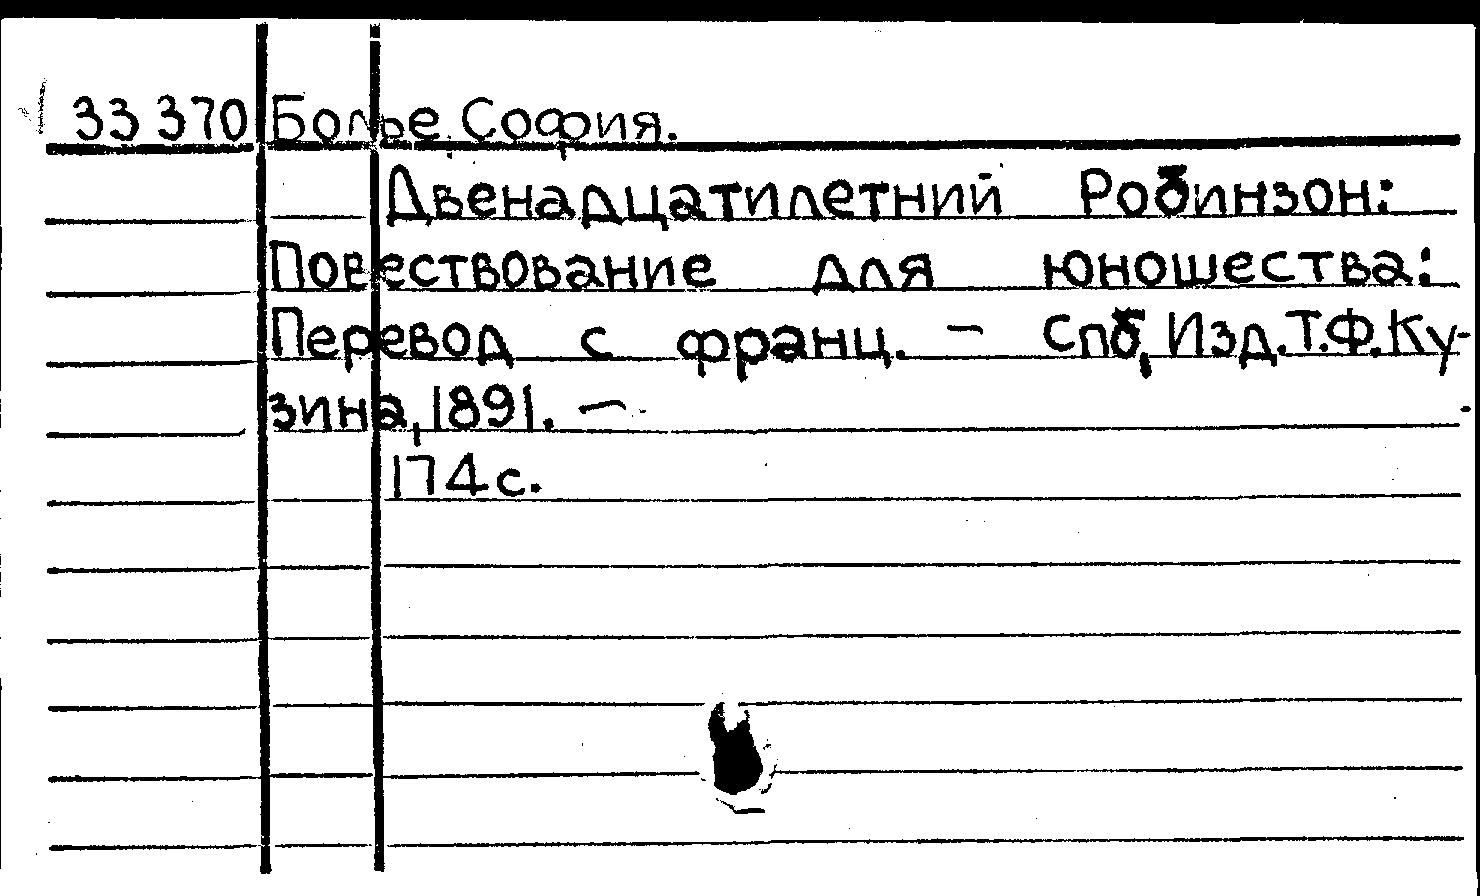 33 370 Болье, София.
Двенадцатилетний Робинзон:
Повествование для юношества:
Перевод с франц. – Спб, Изд.Т.Ф.Ку-
зина, 1891. –
174 с.